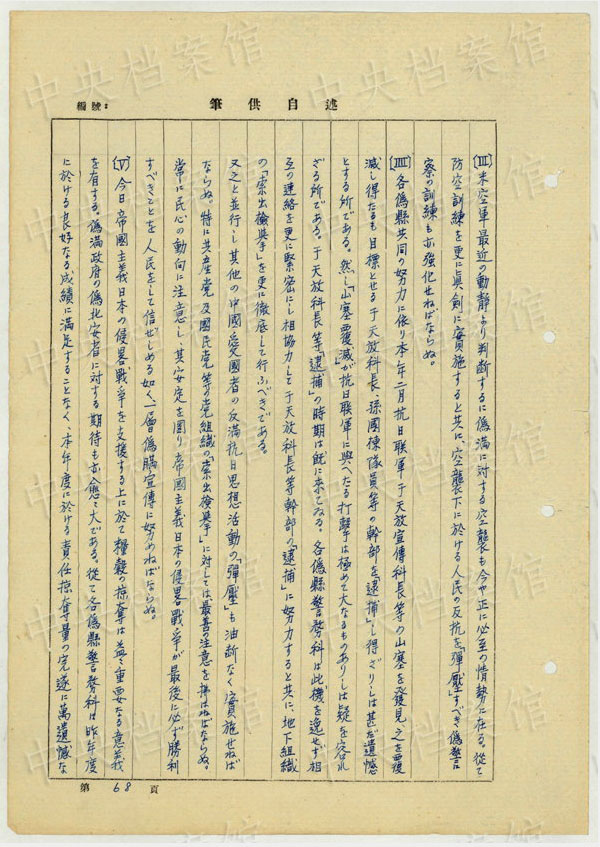 筆供自述
編號：
〔Ⅱ〕米空軍最近の動靜より判断するに偽滿に対する空襲も今や正に必至の情勢に在る。従て
防空訓練を更に眞劍に實施すると共に、空襲下に於ける人民の反抗を「彈壓」すべき偽警
察の訓練も亦強化せねばならぬ。
〔Ⅲ〕各偽縣共同の努力に依り本年二月抗日联軍于天放宣傳科長等の山塞を發見之を覆
滅し得たるも目標とせる于天放科長、孫國棟隊員等の幹部を「逮捕」し得ざりしは甚だ遺憾
とする所である。然し「山塞覆滅」が抗日联軍に與へたる打擊は極めて大なるものありしは疑を容れ
ざる所である。于天放科長等「逮捕」の時期は既に来てゐる。各偽縣警務科は此機を逸せず相
互の連絡を更に緊密にし相協力して于天放科長等幹部の「逮捕」に努力すると共に、地下組織
の「索出檢擧」を更に徹底して行ふべきである。
又之と並行し其他の中國愛國者の反滿抗日思想活動の「彈壓」も油断なく實施せねば
ならぬ。特に共産党及國民党等の党組織の「索出檢擧」に対しては、最善の注意を拂はねばならぬ。
常に民心の動向に注意し、其安定を圖り帝國主義日本の侵畧戰爭が最後に必ず勝利
すべきことを人民をして信ぜしめる如く、一層偽瞞宣傳に努めねばならぬ。
〔Ⅴ〕今日帝國主義日本の侵畧戰爭を支援する上に於て糧穀の掠奪は益々重要なる意義
を有する。偽滿政府の偽北安省に対する期待も亦愈々大である。従て各偽縣警務科は昨年度
に於ける良好なる成績に滿足することなく、本年度に於ける責任掠奪量の完遂に萬遺憾な
第 68 頁
中央档案馆
中央档案馆
中央档案馆
中央档案馆